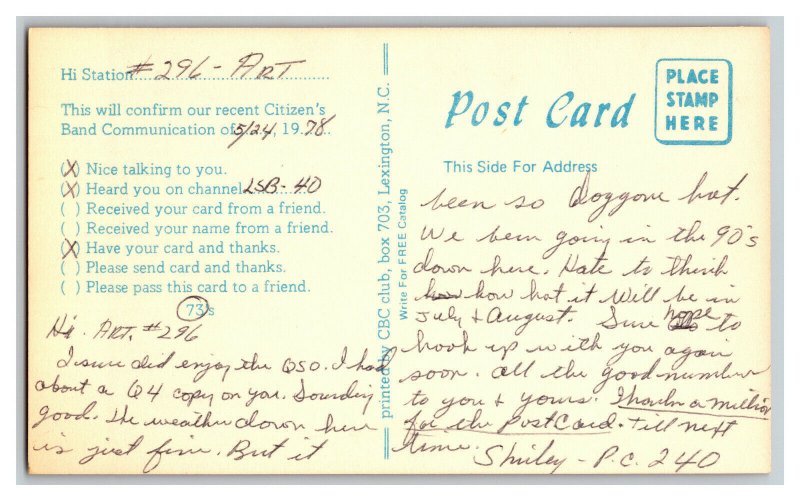 Hi Station #296 - ART
This will confirm our recent Citizen's
Band Communication of 5/24, 1978.
(X) Nice talking to you.
(X) Heard you on channel LSB-40
( ) Received your card from a friend.
( ) Received your name from a friend.
(X) Have your card and thanks.
( ) Please send card and thanks.
( ) Please pass this card to a friend.
73's
Hi. ART. #296
I sure did enjoy the QSO. I had
about a Q4 copy on you. Sounding
good. The weather down here
is just fine. But it
printed by CBC club, box 703, Lexington, N.C.
Write For FREE Catalog
Post Card
PLACE
STAMP
HERE
This Side For Address
been so doggone hot.
We been going in the 90's
down here. Hate to think
how hot it will be in
July & August. Sure hope to
hook up with you again
soon. All the good number
to you & yours. Thanks a million
for the PostCard. Till next
time.
Shirley - P.C. 240